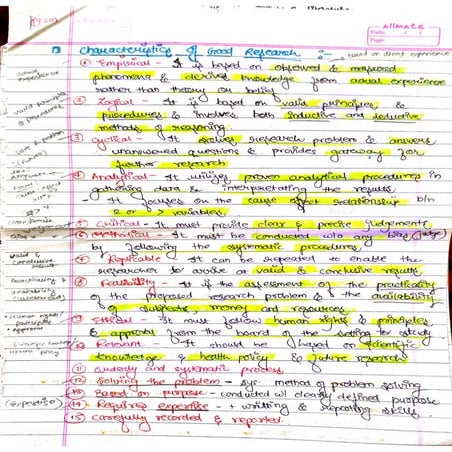 climate
Date:
Page:
Characteristics of Good Research :-
based on direct experience
① Empirical - It is based on observed & measured
phenomena & derives knowledge from actual experience
rather than theory or belief
② Logical - It is based on valid principles &
procedures & involves both inductive and deductive
methods of reasoning
③ Cyclical - It research problem & answers
unanswered questions & provides gateway for
further research
④ Analytical - It utilizes proven analytical procedures in
gathering data & interpretating the results
It focuses on the cause effect relationship b/n
2 or > variables
⑤ Critical - It must provide clear & precise judgements
⑥ It must be conducted w/o any bias
by following the systematic procedures
⑦ Replicable - It can be repeated to enable the
researcher to arrive at valid & conclusive results
⑧ Feasibility - It is the assessment of the practicality
of the proposed research problem & the availability
of subjects, money and resources
⑨ Ethical - It must follow human rights & principles
& approval from the board of the setting to study
⑩ Relevant - It should be based on scientific
knowledge & health policy & future research
⑪ orderly and systematic process
⑫ Solving the problem - sys. method of problem solving
⑬ Based on purpose - conducted w/ clearly defined purpose
⑭ Requires expertise - + writting & reporting skills
⑮ Carefully recorded & reported
actual
experience
valid principles
& procedures
valid &
conclusive results
Practicality &
availability
Human rights/
principles
approval
(expertise)